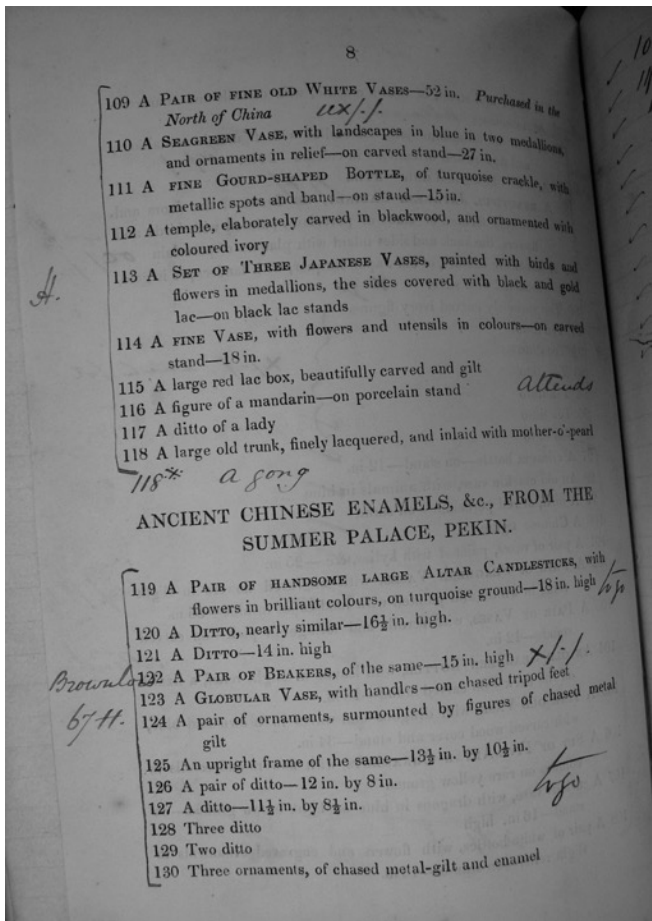 8
109 A Pair of fine old White Vases—52 in. Purchased in the
North of China
110 A Seagreen Vase, with landscapes in blue in two medallions,
and ornaments in relief—on carved stand—27 in.
111 A fine Gourd-shaped Bottle, of turquoise crackle, with
metallic spots and band—on stand—15 in.
112 A temple, elaborately carved in blackwood, and ornamented with
coloured ivory
113 A Set of Three Japanese Vases, painted with birds and
flowers in medallions, the sides covered with black and gold
lac—on black lac stands
H.
114 A fine Vase, with flowers and utensils in colours—on carved
stand—18 in.
115 A large red lac box, beautifully carved and gilt
116 A figure of a mandarin—on porcelain stand
attends
117 A ditto of a lady
118 A large old trunk, finely lacquered, and inlaid with mother-o'-pearl
118* a gong
ANCIENT CHINESE ENAMELS, &c., FROM THE
SUMMER PALACE, PEKIN.
119 A Pair of handsome large Altar Candlesticks, with
flowers in brilliant colours, on turquoise ground—18 in. high
120 A Ditto, nearly similar—16½ in. high.
121 A Ditto—14 in. high
122 A Pair of Beakers, of the same—15 in. high x/-/-.
Brownlow
123 A Globular Vase, with handles—on chased tripod feet
67 H.
124 A pair of ornaments, surmounted by figures of chased metal
gilt
125 An upright frame of the same—13½ in. by 10½ in.
126 A pair of ditto—12 in. by 8 in.
127 A ditto—11½ in. by 8½ in.
128 Three ditto
129 Two ditto
130 Three ornaments, of chased metal-gilt and enamel